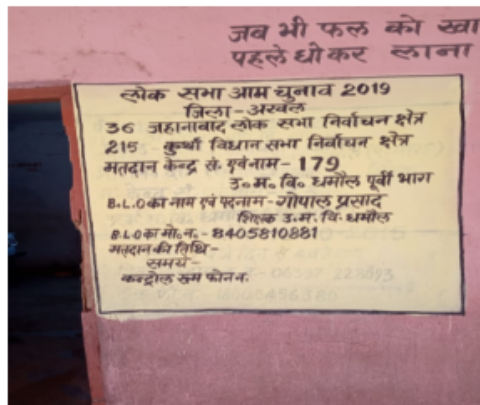 जब भी फल को खा
पहले धोकर लाना
लोक सभा आम चुनाव 2019
जिला-अरवल
36 जहानाबाद लोक सभा निर्वाचन क्षेत्र
215 कुर्था विधान सभा निर्वाचन क्षेत्र
मतदान केन्द्र सं. एवं नाम- 179
उ.म.वि. धमौल पूर्वी भाग
B.L.O का नाम एवं पदनाम-गोपाल प्रसाद
शिक्षक उ.म.वि. धमौल
B.L.O का मो.न.- 8405810881
मतदान की तिथि-
समय-
कन्ट्रोल रूम फोन न.